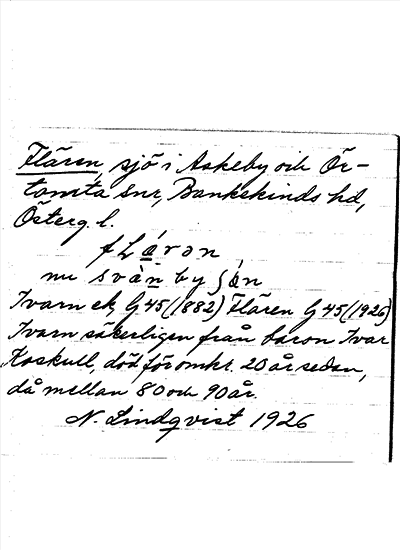 Flären, sjö i Askeby och Ör-
tomta snr, Bankekinds hd,
Österg. l.
fLärən
nu svànbyſön
Ivarn ek, G 45 (1882) Flären G 45 (1926)
Ivarn säkerligen från baron Ivar
Koskull, död för omkr. 20 år sedan,
då mellan 80 och 90 år.
N. Lindqvist 1926